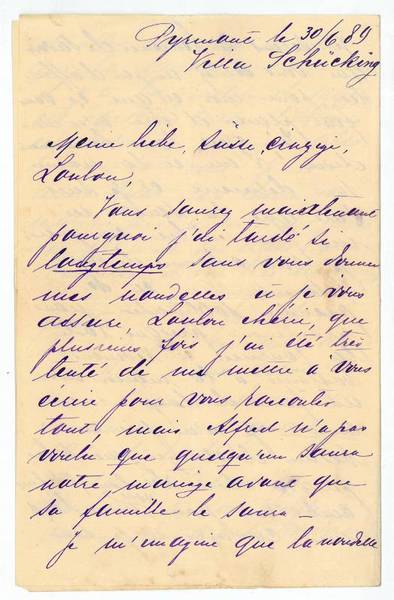 Pyrmont le 30/6 89
Villa Schücking
Meine liebe, süsse, einzige,
Loulou,
Vous saurez maintenant
pourquoi j'ai tardé si
longtemps sans vous donner
mes nouvelles et je vous
assure, Loulou chérie, que
plusieurs fois j'ai été très
tenté de me mettre à vous
écrire pour vous raconter
tout, mais Alfred n'a pas
voulu que quelqu'un saura
notre mariage avant que
sa famille le saura –
Je m'imagine que la nouvelle